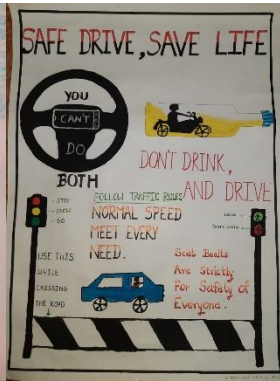 SAFE DRIVE, SAVE LIFE
YOU
CAN'T
DO
BOTH
DON'T DRINK,
AND DRIVE
STOP
GO
FOLLOW TRAFFIC RULES
NORMAL SPEED
MEET EVERY
NEED.
USE THIS
WHILE
CROSSING
THE ROAD
Seat Bealts
Are Strictly
For Safety of
Everyone.